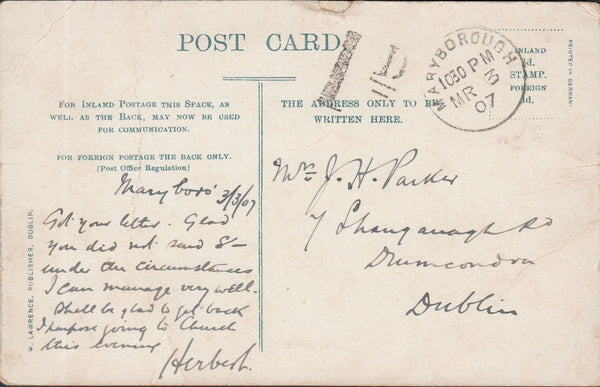 POST CARD.
MARYBOROUGH
1030 PM
MR 3
07
INLAND
½d.
STAMP.
FOREIGN
1d.
PRINTED IN GERMANY
FOR INLAND POSTAGE THIS SPACE, AS
WELL AS THE BACK, MAY NOW BE USED
FOR COMMUNICATION.
FOR FOREIGN POSTAGE THE BACK ONLY.
(Post Office Regulation)
THE ADDRESS ONLY TO BE
WRITTEN HERE.
W. LAWRENCE, PUBLISHER, DUBLIN.
Maryboro' 3/3/07
Got your letter. Glad
you did not send 5/-
under the circumstances
I can manage very well.
Shall be glad to get back
I purpose going to Church
this evening
Herbert.
Mrs J. H. Parker
7 Shanganagh Rd
Drumcondra
Dublin